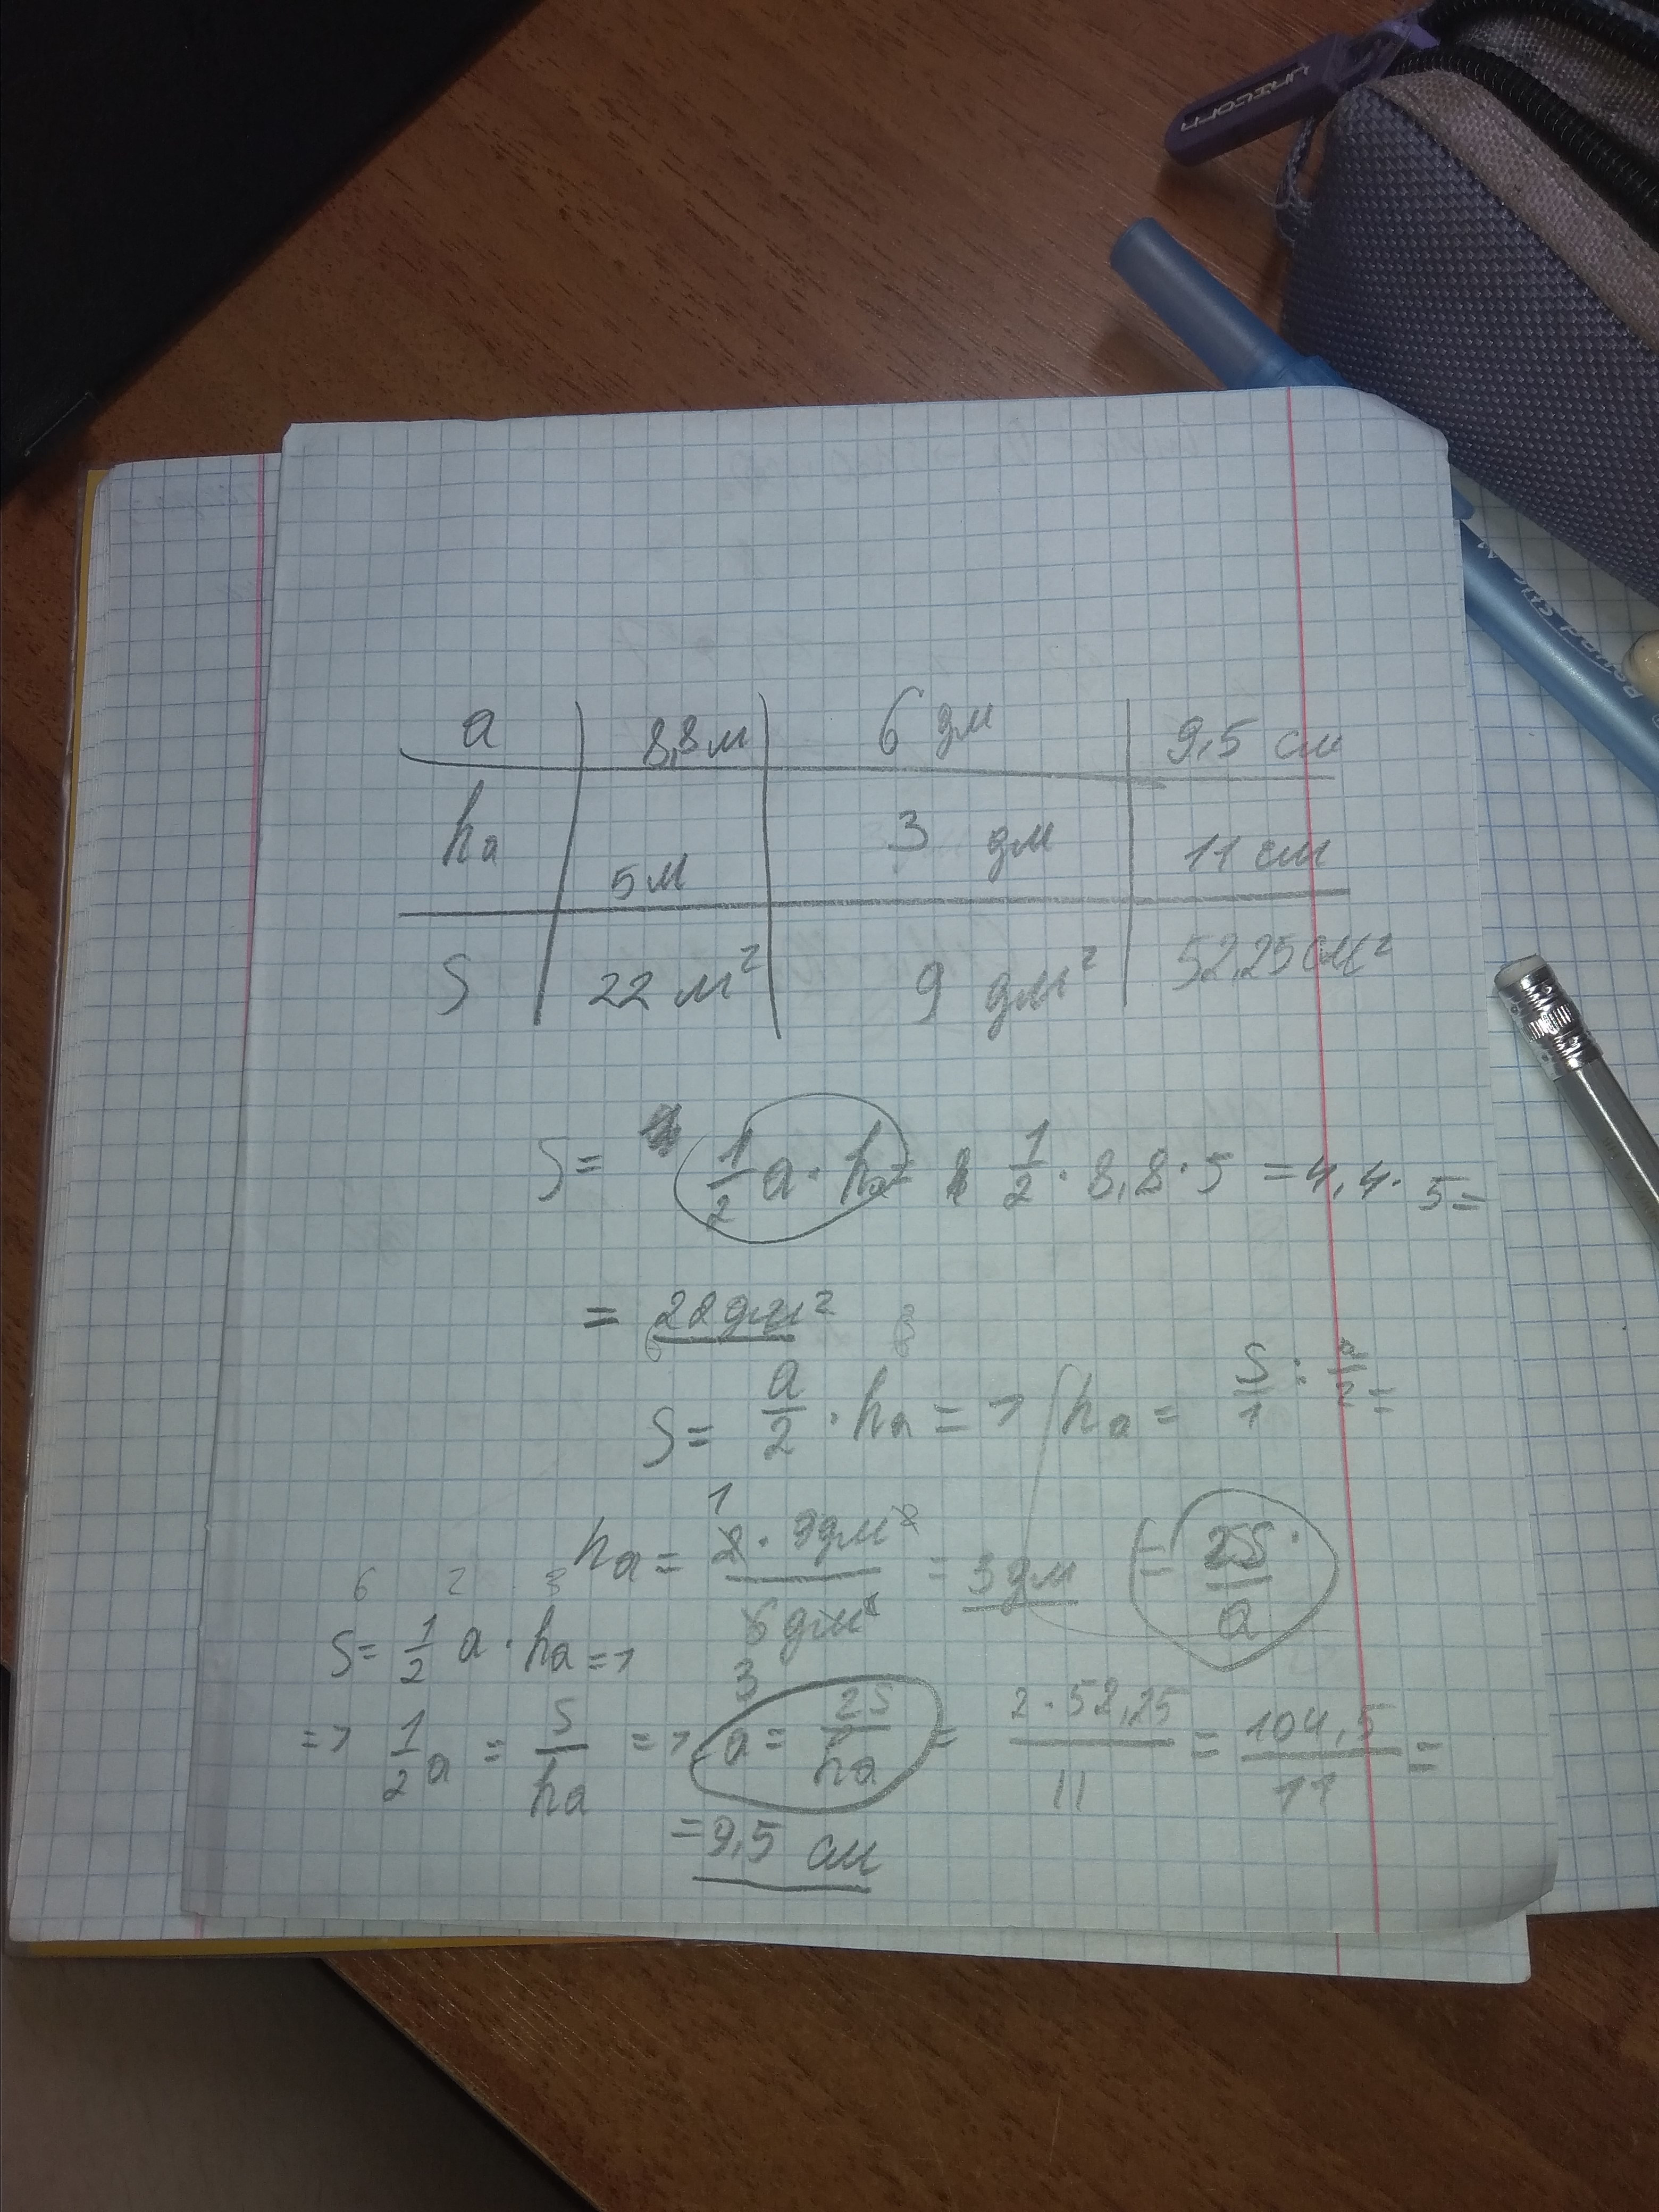 UNICORN
a 8,8 м 6 дм 9,5 см
ha 5 м 3 дм 11 см
S 22 м² 9 дм² 52,25 см²
S = 1/2 a · ha = 1/2 · 8,8 · 5 = 4,4 · 5 =
= 22 дм²
S = a/2 · ha => ha = S/1 : a/2 =
ha = 2 · 9 дм²/6 дм = 3 дм = 2S/a
6 2 3
S = 1/2 a · ha =>
=> 1/2 a = S/ha => a = 2S/ha = 2 · 52,25/11 = 104,5/11 =
= 9,5 см